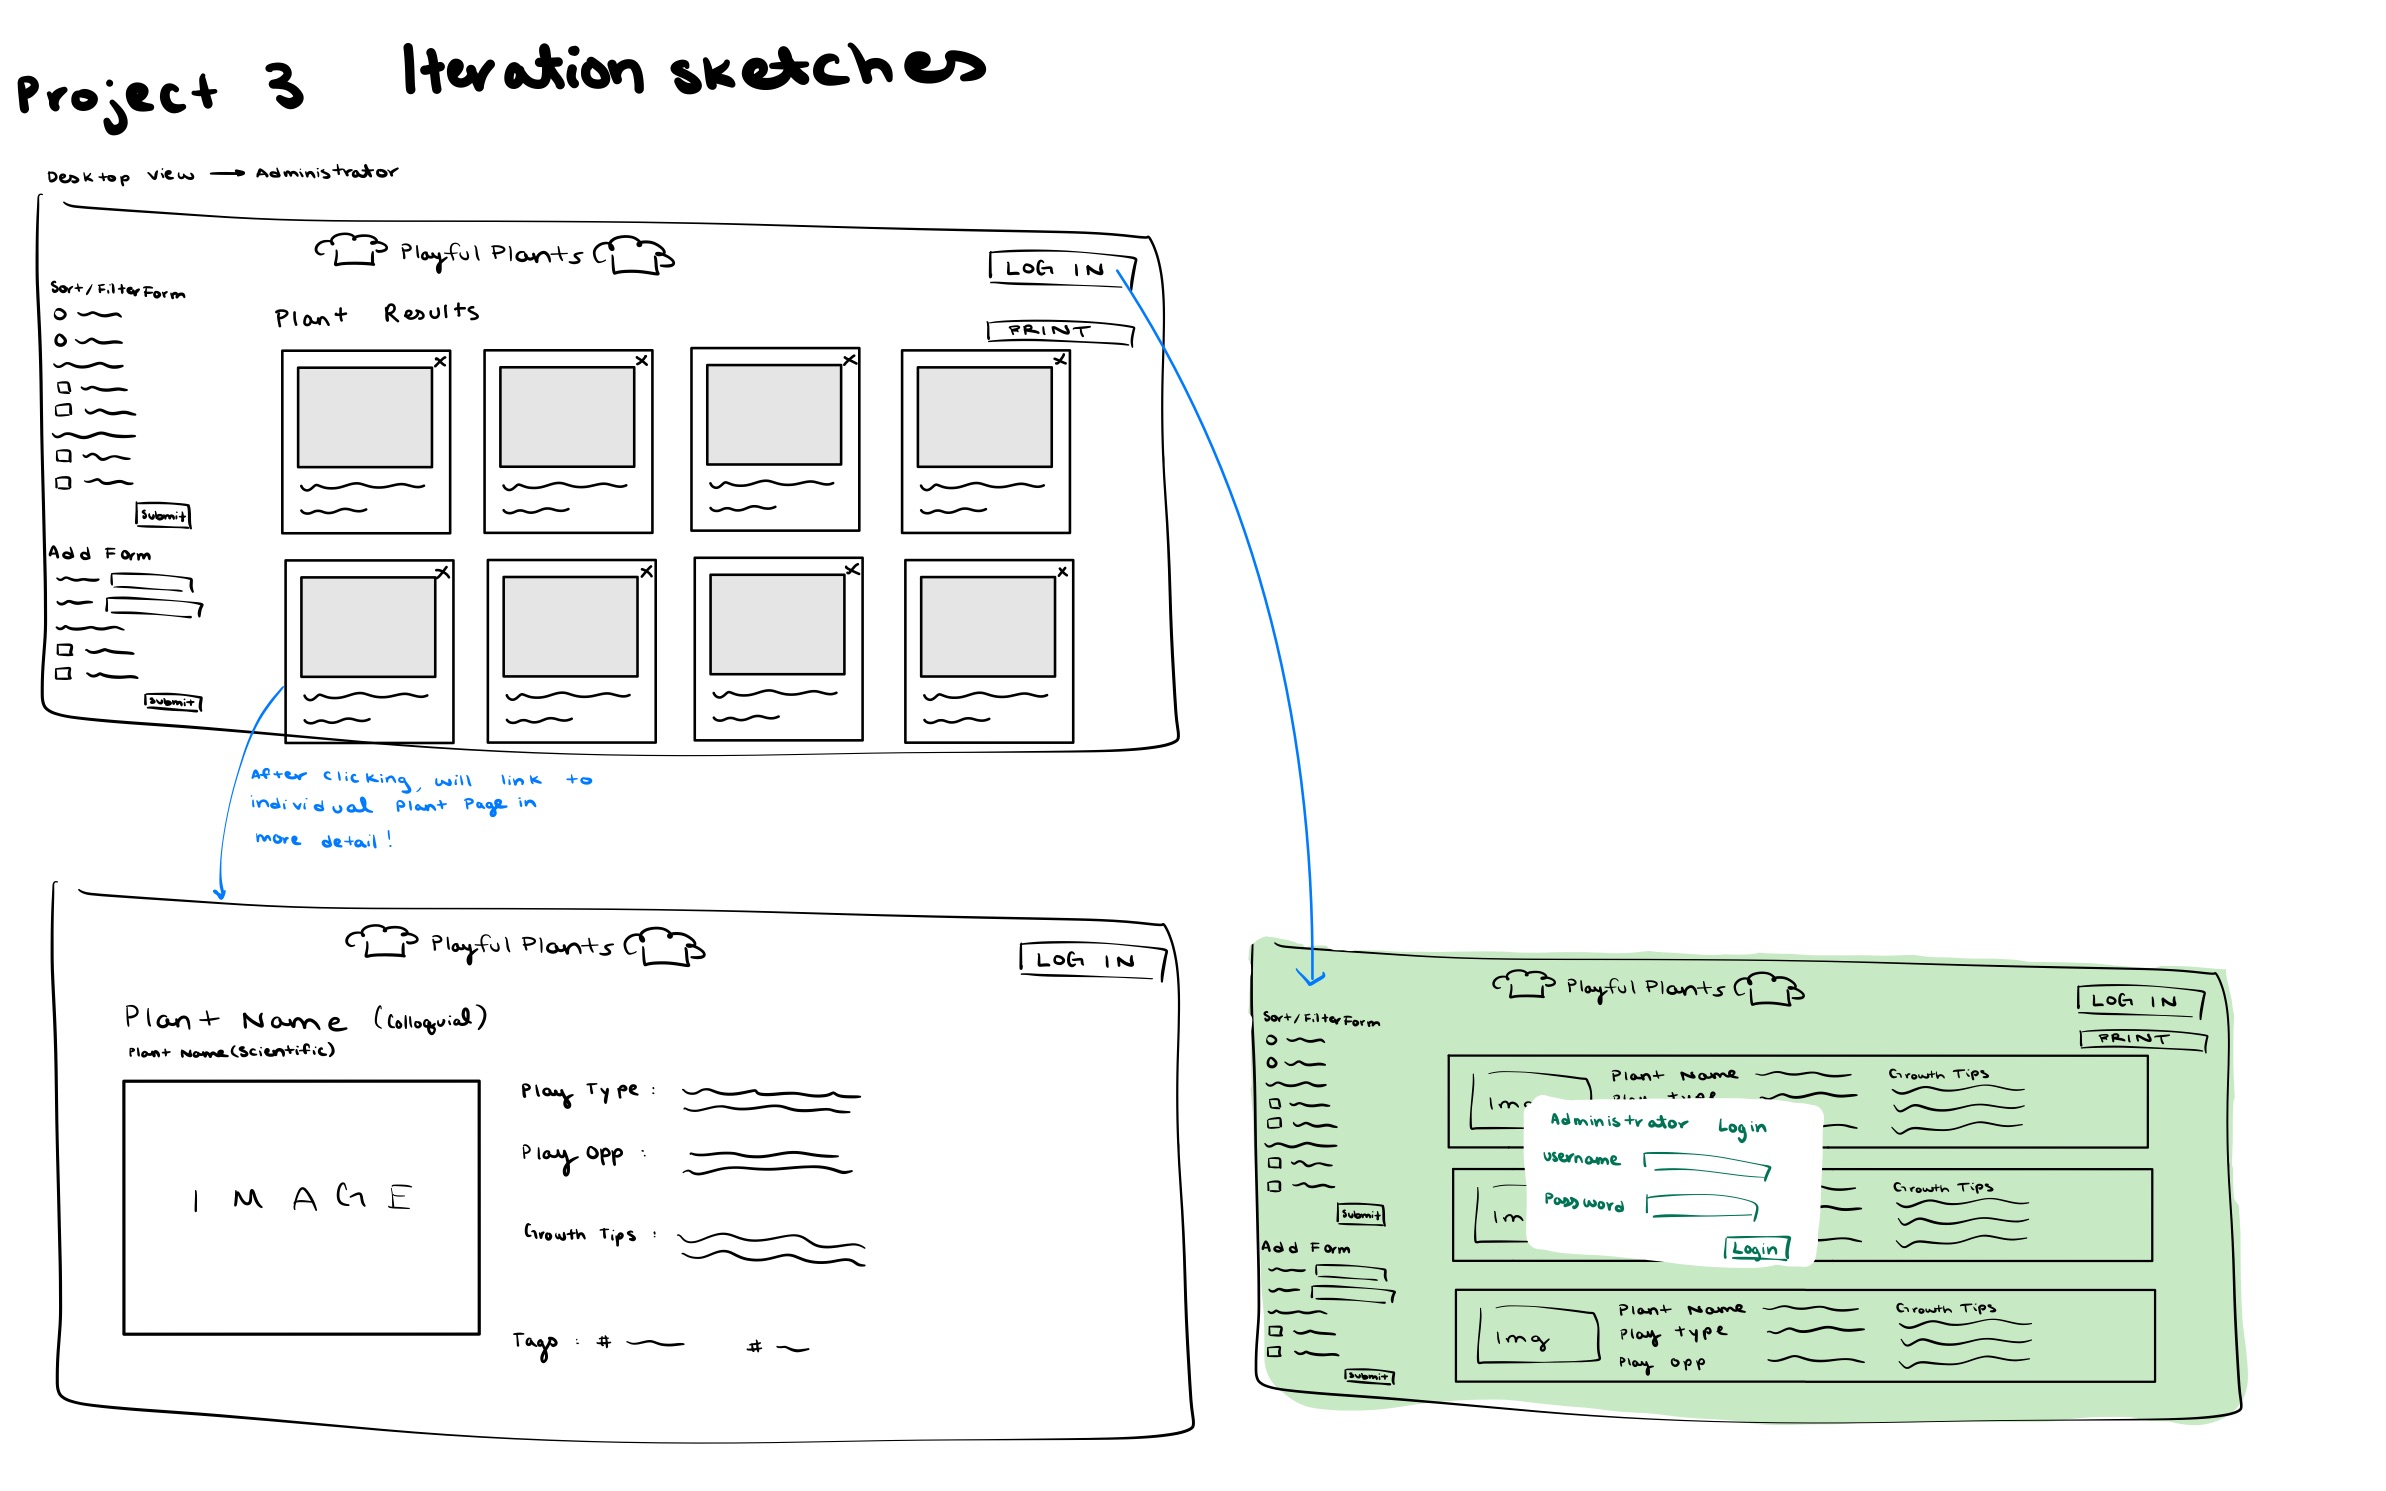 Project 3 Iteration sketches
Desktop view → Administrator
Playful Plants
LOG IN
PRINT
Sort/Filter Form
Submit
Add Form
Submit
Plant Results
X X X X
X X X X
After clicking, will link to
individual Plant Page in
more detail!
Playful Plants
LOG IN
Plant Name (Colloquial)
Plant Name (Scientific)
IMAGE
Play Type :
Play Opp :
Growth Tips :
Tags : # #
Playful Plants
LOG IN
PRINT
Sort/Filter Form
Submit
Add Form
Submit
Img
Plant Name
Play type
Growth Tips
Administrator Login
username
Password
Login
Im
Growth Tips
Img
Plant Name
Play type
Play opp
Growth Tips